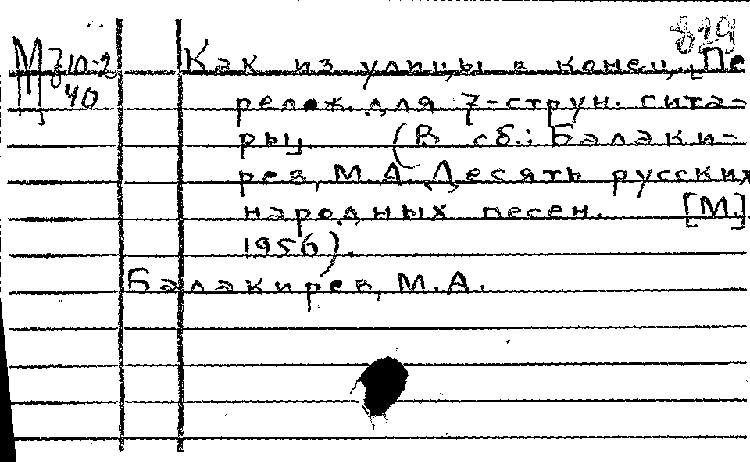 829
М З10-2 Как из улицы в конец. [Пе
40 релож. для 7-струн. гита-
ры (В сб.: Балаки-
рев, М.А. Десять русских
народных песен. [М.]
1956).
Балакирев, М.А.